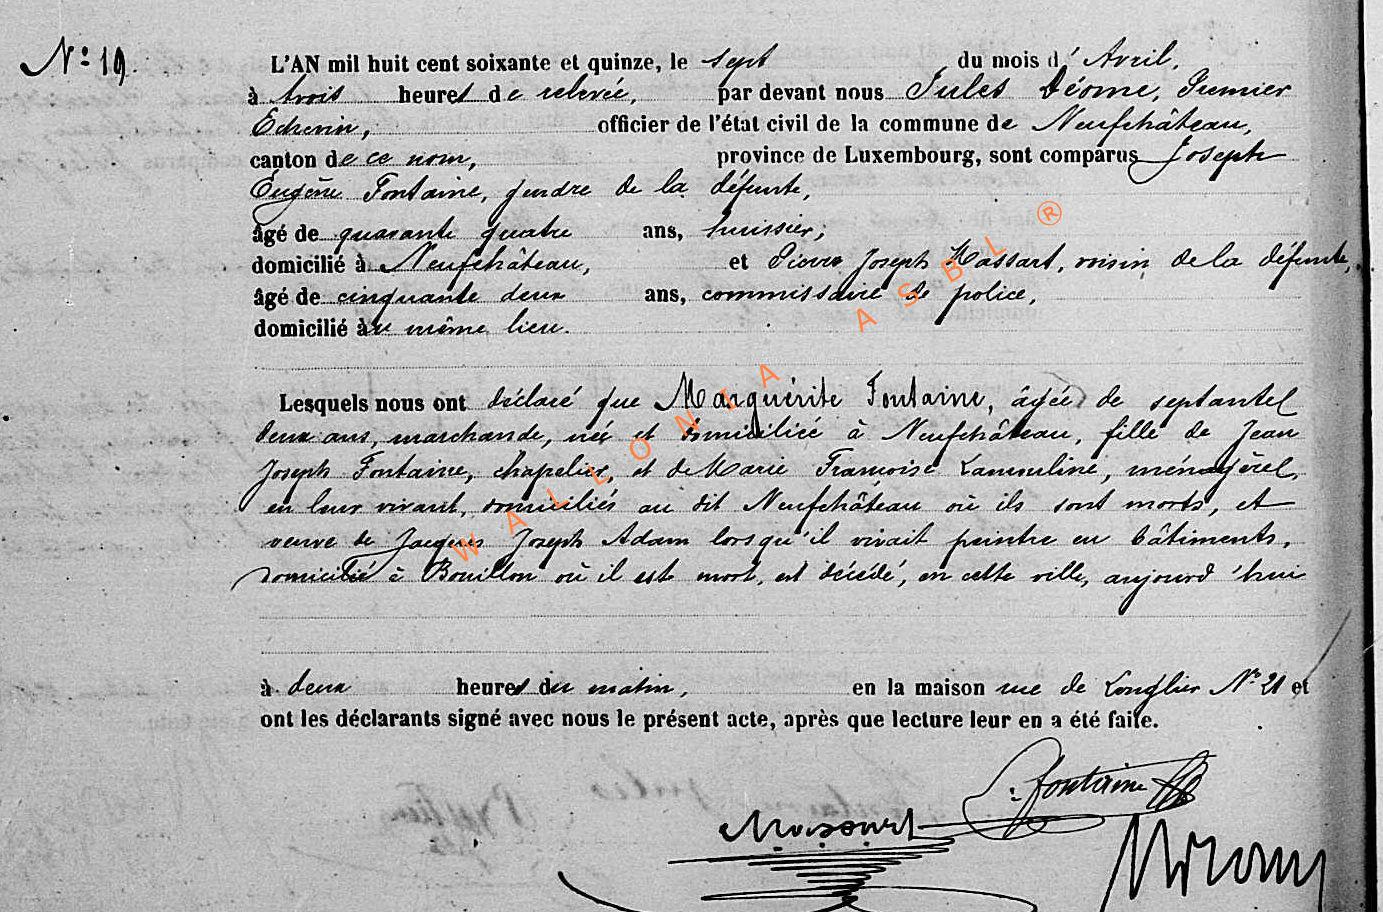 N° 19.
L'AN mil huit cent soixante et quinze, le sept du mois d'Avril,
à trois heures de relevée, par devant nous Jules Déome, Premier
Echevin, officier de l'état civil de la commune de Neufchâteau,
canton de ce nom, province de Luxembourg, sont comparus Joseph
Eugène Fontaine, gendre de la défunte,
âgé de quarante quatre ans, huissier,
domicilié à Neufchâteau, et Pierre Joseph Massart, voisin de la défunte,
âgé de cinquante deux ans, commissaire de police,
domicilié au même lieu.
Lesquels nous ont déclaré que Marguérite Fontaine, âgée de septante
deux ans, marchande, née et domiciliée à Neufchâteau, fille de Jean
Joseph Fontaine, chapelier, et de Marie Françoise Lamouline, ménagère,
en leur vivant, domiciliés au dit Neufchâteau où ils sont morts, et
veuve de Jacques Joseph Adam lorsqu'il vivait peintre en bâtiments,
domicilié à Bouillon où il est mort, est décédé, en cette ville, aujourd'hui
à deux heures du matin, en la maison rue de Longlier N° 21 et
ont les déclarants signé avec nous le présent acte, après que lecture leur en a été faite.
Fontaine
Massart
WALLONIA ASBL ®